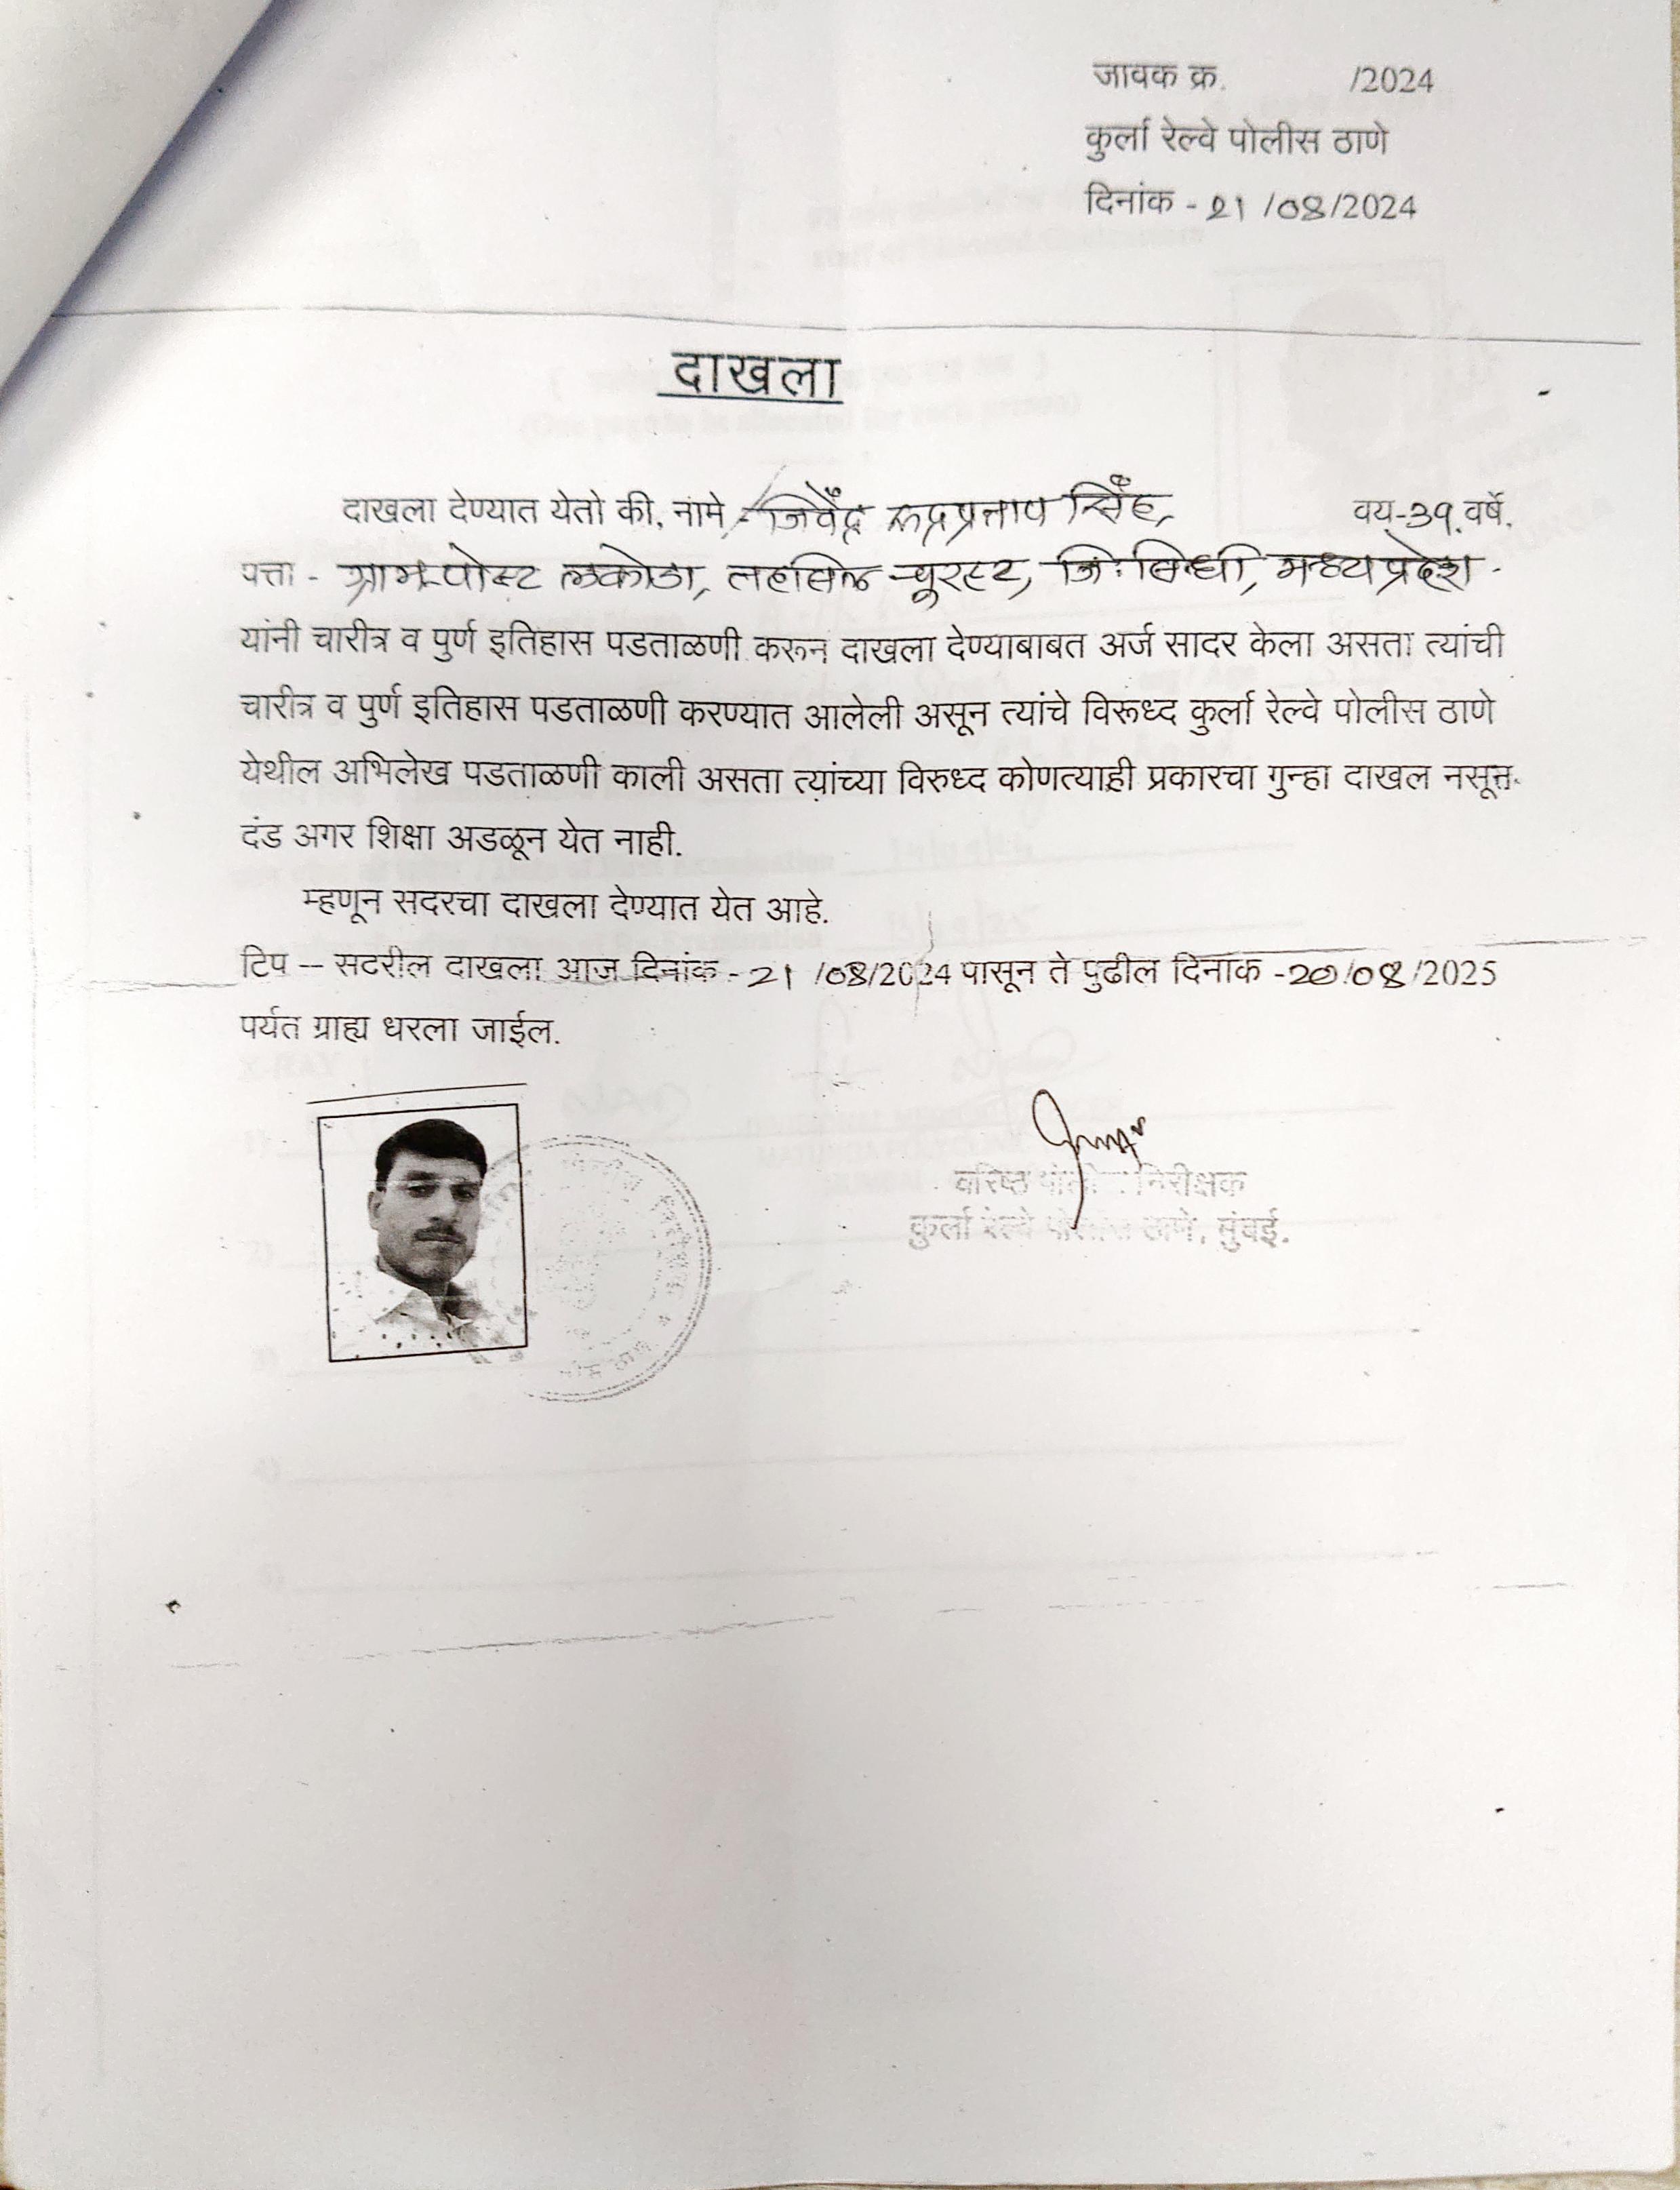 जावक क्र. /2024
कुर्ला रेल्वे पोलीस ठाणे
दिनांक - 21 /08/2024
दाखला
दाखला देण्यात येतो की, नामे - रुद्रप्रताप सिंह, वय-39.वर्षे.
पत्ता - ग्राम-पोस्ट लकोडा, तहसिल चूरहट, जि. सिधी, मध्यप्रदेश.
यांनी चारीत्र व पुर्ण इतिहास पडताळणी करून दाखला देण्याबाबत अर्ज सादर केला असता त्यांची
चारीत्र व पुर्ण इतिहास पडताळणी करण्यात आलेली असून त्यांचे विरूध्द कुर्ला रेल्वे पोलीस ठाणे
येथील अभिलेख पडताळणी काली असता त्यांच्या विरुध्द कोणत्याही प्रकारचा गुन्हा दाखल नसून
दंड अगर शिक्षा अडळून येत नाही.
म्हणून सदरचा दाखला देण्यात येत आहे.
टिप – सदरील दाखला आज दिनांक - 21 /08/2024 पासून ते पुढील दिनाक -20/08/2025
पर्यत ग्राह्य धरला जाईल.
वरिष्ठ पोलीस निरीक्षक
कुर्ला रेल्वे पोलीस ठाणे, मुंबई.